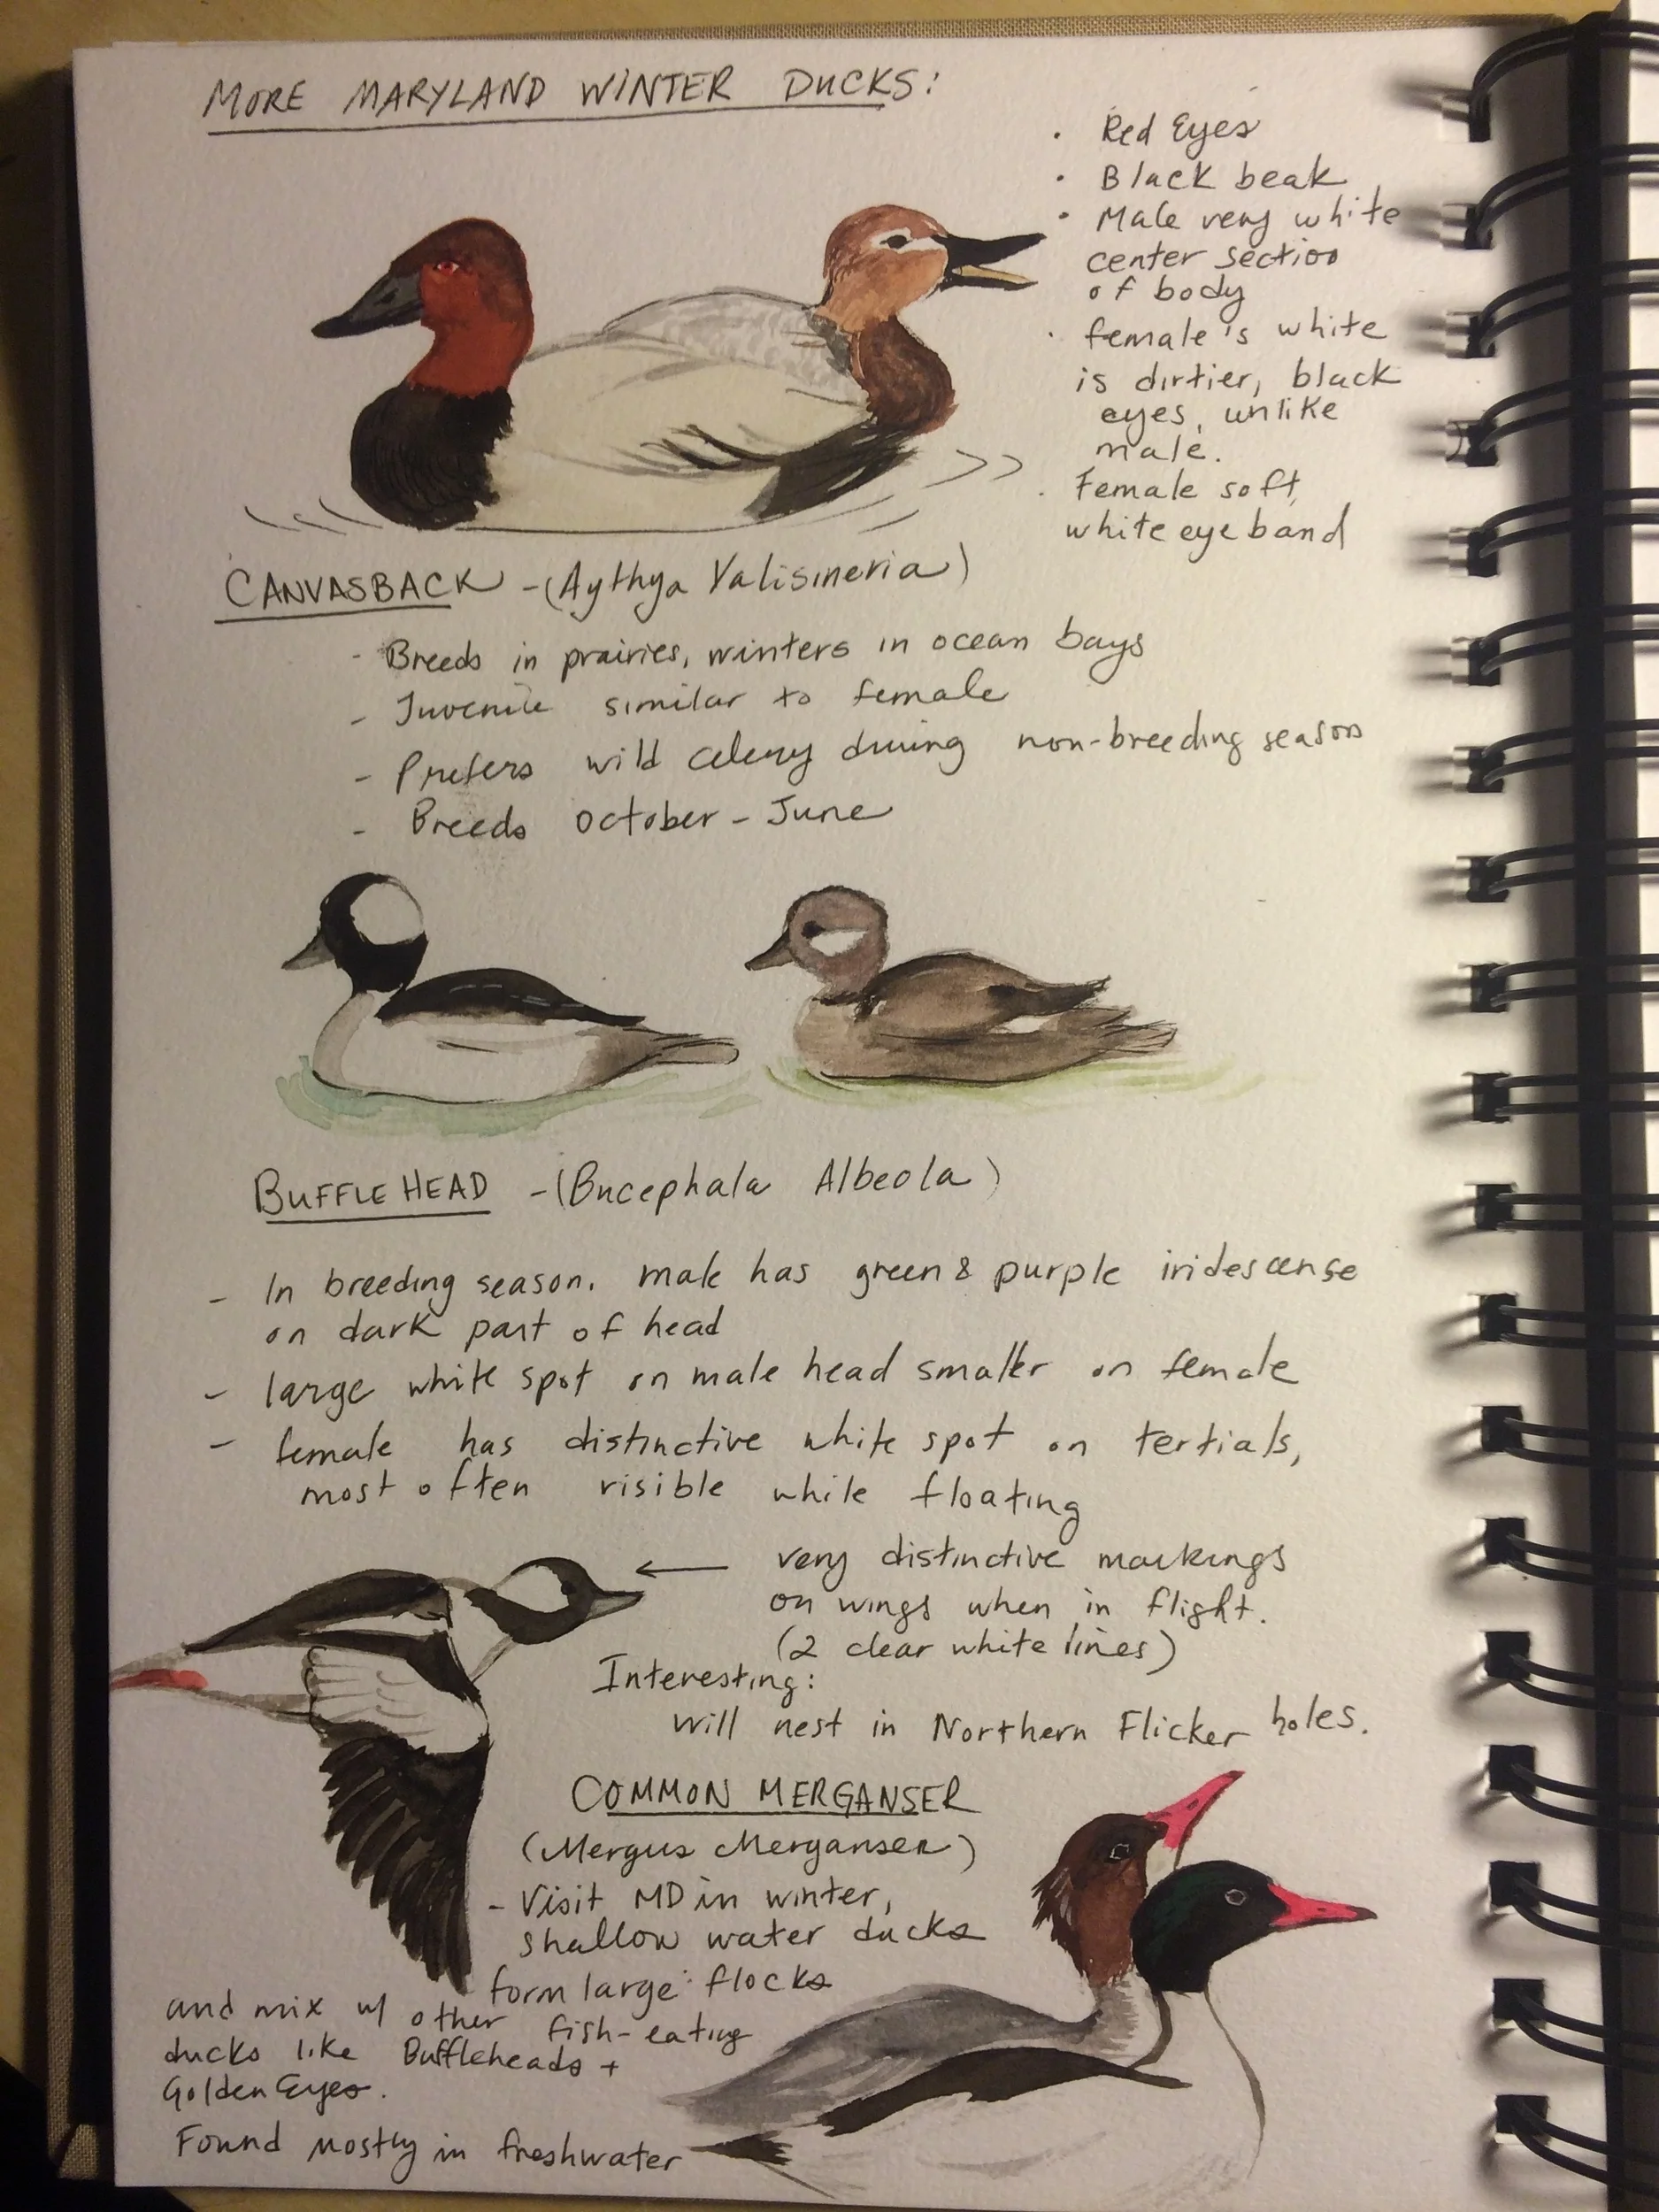 MORE MARYLAND WINTER DUCKS:
· Red Eyes
· Black beak
· Male very white
center section
of body
· female's white
is dirtier, black
eyes, unlike
male.
· Female soft,
white eye band
CANVASBACK - (Aythya Valisineria)
- Breeds in prairies, winters in ocean bays
- Juvenile similar to female
- Prefers wild celery during non-breeding season
- Breeds October - June
BUFFLEHEAD - (Bucephala Albeola)
- In breeding season, male has green & purple iridescense
on dark part of head
- large white spot on male head smaller on female
- female has distinctive white spot on tertials,
most often visible while floating
← very distinctive markings
on wings when in flight.
(2 clear white lines)
Interesting:
will nest in Northern Flicker holes.
COMMON MERGANSER
(Mergus Merganser)
- Visit MD in winter,
shallow water ducks
form large flocks
and mix w/ other fish-eating
ducks like Buffleheads +
GoldenEyes.
Found mostly in freshwater